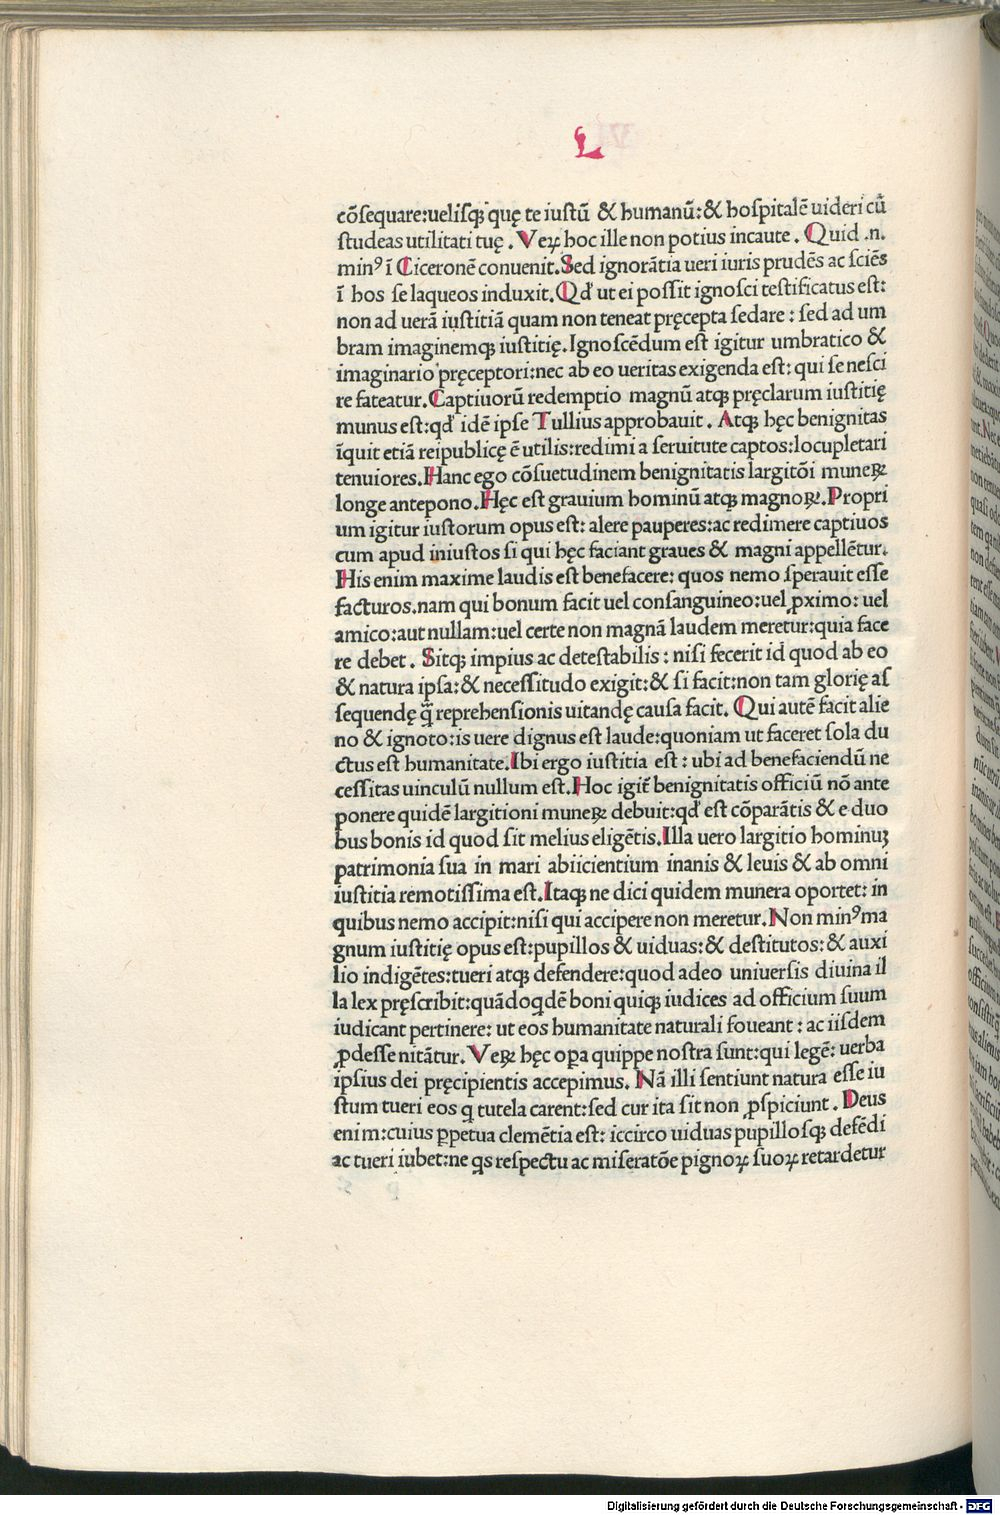 L
cōſequare:ueliſqꝫ quę te iuſtū & humanū:& hoſpitalē uideri cū
ſtudeas utilitati tuę . Veꝝ hoc ille non potius incaute . Quid .n.
minꝰ ī Ciceronē conuenit. Sed ignorātia ueri iuris prudēs ac ſciēs
ī hos ſe laqueos induxit. Qd̓ ut ei poſſit ignoſci teſtificatus eſt:
non ad uerā iuſtitiā quam non teneat pręcepta ſedare : ſed ad um
bram imaginemqꝫ iuſtitię. Ignoſcēdum eſt igitur umbratico &
imaginario pręceptori:nec ab eo ueritas exigenda eſt: qui ſe neſci
re fateatur. Captiuorū redemptio magnū atqꝫ pręclarum iuſtitię
munus eſt:qd̓ idē ipſe Tullius approbauit . Atqꝫ hęc benignitas
īquit etiā reipublicę ē utilis:redimi a ſeruitute captos:locupletari
tenuiores. Hanc ego cōſuetudinem benignitatis largitōi muneꝝ
longe antepono. Hęc eſt grauium hominū atqꝫ magnoꝝ. Propri
um igitur iuſtorum opus eſt: alere pauperes:ac redimere captiuos
cum apud iniuſtos ſi qui hęc faciant graues & magni appellētur.
His enim maxime laudis eſt benefacere: quos nemo ſperauit eſſe
facturos.nam qui bonum facit uel conſanguineo:uel ꝓximo: uel
amico:aut nullam:uel certe non magnā laudem meretur:quia face
re debet . Sitqꝫ impius ac deteſtabilis : niſi fecerit id quod ab eo
& natura ipſa:& neceſſitudo exigit:& ſi facit:non tam glorię aſ
ſequendę q̄̄ reprehenſionis uitandę cauſa facit. Qui autē facit alie
no & ignoto:is uere dignus eſt laude:quoniam ut faceret ſola du
ctus eſt humanitate. Ibi ergo iuſtitia eſt : ubi ad benefaciendū ne
ceſſitas uinculū nullum eſt. Hoc igit̄ benignitatis officiū nō ante
ponere quidē largitioni muneꝝ debuit:qd̓ eſt cōparātis & e duo
bus bonis id quod ſit melius eligētis. Illa uero largitio hominuꝫ
patrimonia ſua in mari abiicientium inanis & leuis & ab omni
iuſtitia remotiſſima eſt. Itaqꝫ ne dici quidem munera oportet: in
quibus nemo accipit:niſi qui accipere non meretur. Non minꝰ ma
gnum iuſtitię opus eſt:pupillos & uiduas:& deſtitutos:& auxi
lio indigētes:tueri atqꝫ defendere:quod adeo uniuerſis diuina il
la lex pręſcribit:quādoꝗdē boni quiqꝫ iudices ad officium ſuum
iudicant pertinere: ut eos humanitate naturali foueant : ac iiſdem
ꝓdeſſe nitātur. Veꝝ hęc oꝑa quippe noſtra ſunt:qui legē: uerba
ipſius dei pręcipientis accepimus. Nā illi ſentiunt natura eſſe iu
ſtum tueri eos ꝗ tutela carent:ſed cur ita ſit non ꝑſpiciunt . Deus
enim:cuius ꝑpetua clemētia eſt: iccirco uiduas pupilloſqꝫ defēdi
ac tueri iubet:ne ꝗs reſpectu ac miſeratōe pignoꝝ ſuoꝝ retardetur
Digitalisierung gefördert durch die Deutsche Forschungsgemeinschaft - DFG